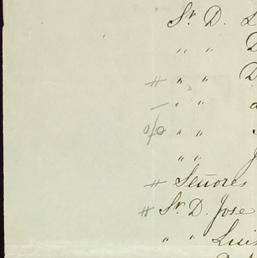 Sr. D. L
" " D
# " " D
— " "
o/o " "
" "
# Señores
# Sr. D. Jose
" " Luis